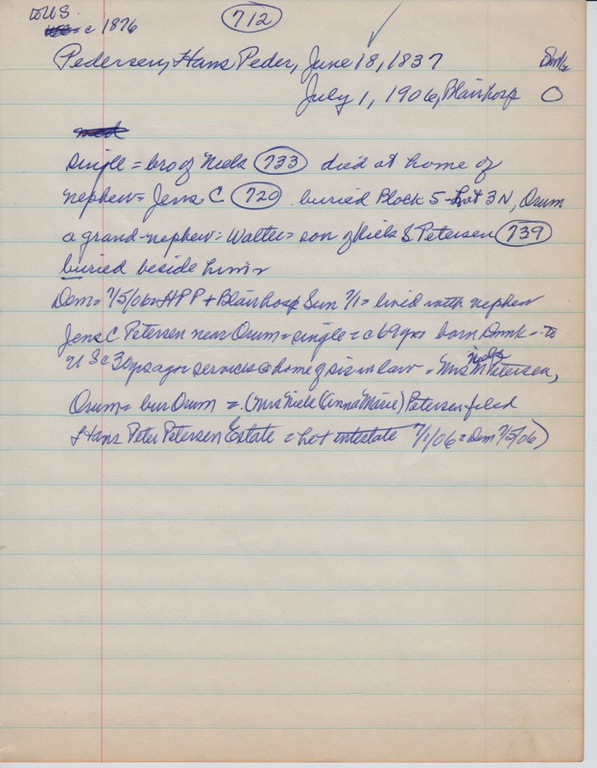 to US
c 1876
712
Pedersen, Hans Peder, June 18, 1837 Dmk
July 1, 1906, Blair hosp O
single = bro of Niels (733) died at home of
nephew = Jens C (720) buried Block 5-Lot 3N, Orum
a grand-nephew = Walter = son of Niels S Petersen (739)
buried beside him =
Dem = 7/5/06 = HPP + Blair hosp Sun 7/1 = lived with nephew
Jens C Petersen near Orum = single = c 69 yrs born Dmk = to
US c 30 yrs ago = services @ home of sis in law = Mrs Niels Petersen,
Orum = bur Orum = (Mrs Niels (Anna Marie) Petersen filed
Hans Peter Petersen Estate = intestate 7/1/06 = Dem 7/5/06)